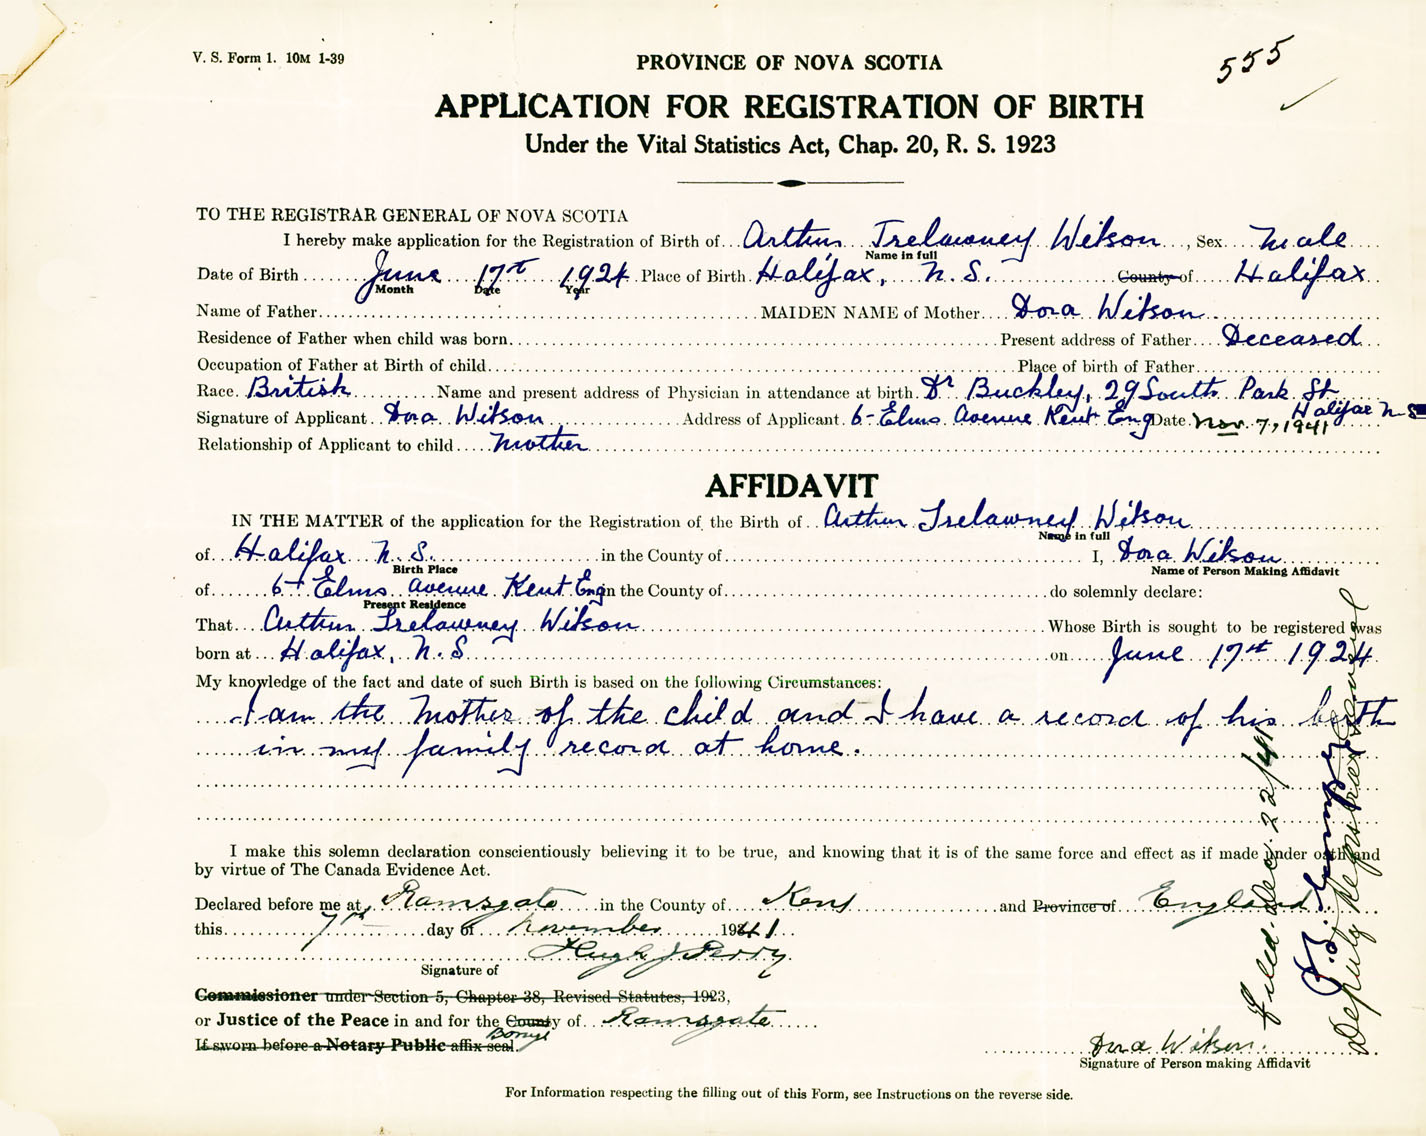 V. S. Form 1. 10M 1-39
555
PROVINCE OF NOVA SCOTIA
APPLICATION FOR REGISTRATION OF BIRTH
Under the Vital Statistics Act, Chap. 20, R. S. 1923
TO THE REGISTRAR GENERAL OF NOVA SCOTIA
I hereby make application for the Registration of Birth of Arthur Trelawney Wilson, Sex Male
Name in full
Date of Birth June 17th 1924 Place of Birth Halifax, N.S. County of Halifax
Month Date Year
Name of Father MAIDEN NAME of Mother Dora Wilson
Residence of Father when child was born Present address of Father Deceased
Occupation of Father at Birth of child Place of birth of Father
Race British Name and present address of Physician in attendance at birth Dr Buckley, 29 South Park St
Halifax N S
Signature of Applicant Dora Wilson Address of Applicant 6 - Elms Avenue Kent Eng Date Nov. 7, 1941
Relationship of Applicant to child Mother
AFFIDAVIT
IN THE MATTER of the application for the Registration of the Birth of Arthur Trelawney Wilson
Name in full
of Halifax N.S. in the County of I, Dora Wilson
Birth Place Name of Person Making Affidavit
of 6 - Elms Avenue Kent Eng in the County of do solemnly declare:
Present Residence
That Arthur Trelawney Wilson Whose Birth is sought to be registered was
born at Halifax, N.S on June 17th 1924
My knowledge of the fact and date of such Birth is based on the following Circumstances:
I am the Mother of the child and I have a record of his birth
in my family record at home.
I make this solemn declaration conscientiously believing it to be true, and knowing that it is of the same force and effect as if made under oath and
by virtue of The Canada Evidence Act.
Declared before me at Ramsgate in the County of Kent and Province of England
this 7th day of November 1941
Hugh J Perry
Signature of
Commissioner under Section 5, Chapter 38, Revised Statutes, 1923,
or Justice of the Peace in and for the County of Ramsgate
If sworn before a Notary Public affix seal.
Dora Wilson.
Signature of Person making Affidavit
For Information respecting the filling out of this Form, see Instructions on the reverse side.
Filed. Dec. 22/41
Deputy Registrar General